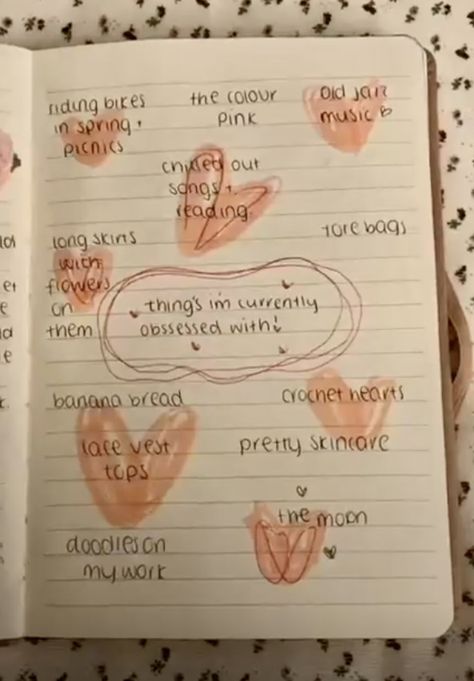 riding bikes
in spring +
picnics
the colour
pink
old jazz
music
chilled out
songs +
reading
long skirts
with
flowers
on
them
tote bags
thing's im currently
obssessed with!
banana bread
crochet hearts
lace vest
tops
pretty skincare
the moon
doodles on
my work